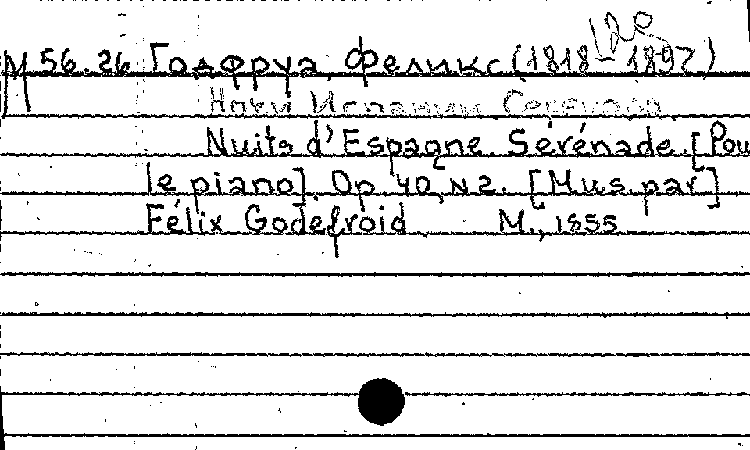 120
М 56.26 Годфруа, Феликс (1818-1897)
Ночи Испании Серенада.
Nuits d'Espagne. Sérénade. [Pou
le piano]. Op. 40, N2. [Mus. par]
Félix Godefroid М., 1855